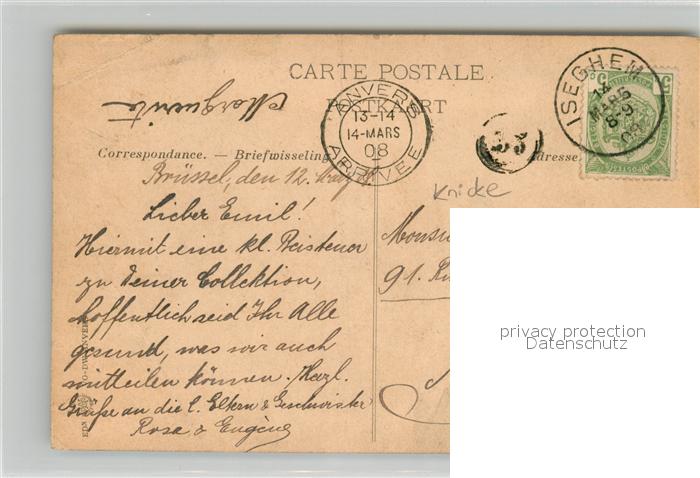 CARTE POSTALE
POSTKAART
Correspondance. — Briefwisseling
Adresse
ANVERS
13-14
14-MARS
08
ARRIVÉE
ISEGHEM
14
MARS
8-9
08
Marguerite
Knicke
Brüssel, den 12. März
Lieber Emil!
Hiermit eine kl.
zu deiner Collektion,
hoffentlich seid Ihr Alle
gesund, was wir auch
mitteilen können. Herzl.
Grüße an die l. Eltern & Geschwister
Rosa & Eugène
91.
privacy protection
Datenschutz